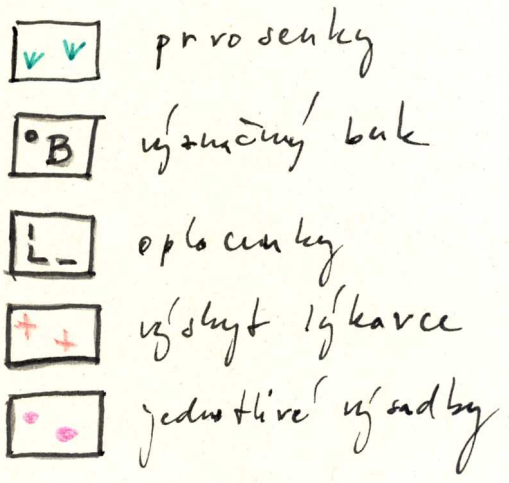 prvosenky
B význačný buk
oplocenky
výskyt lýkavce
jednotlivé výsadby